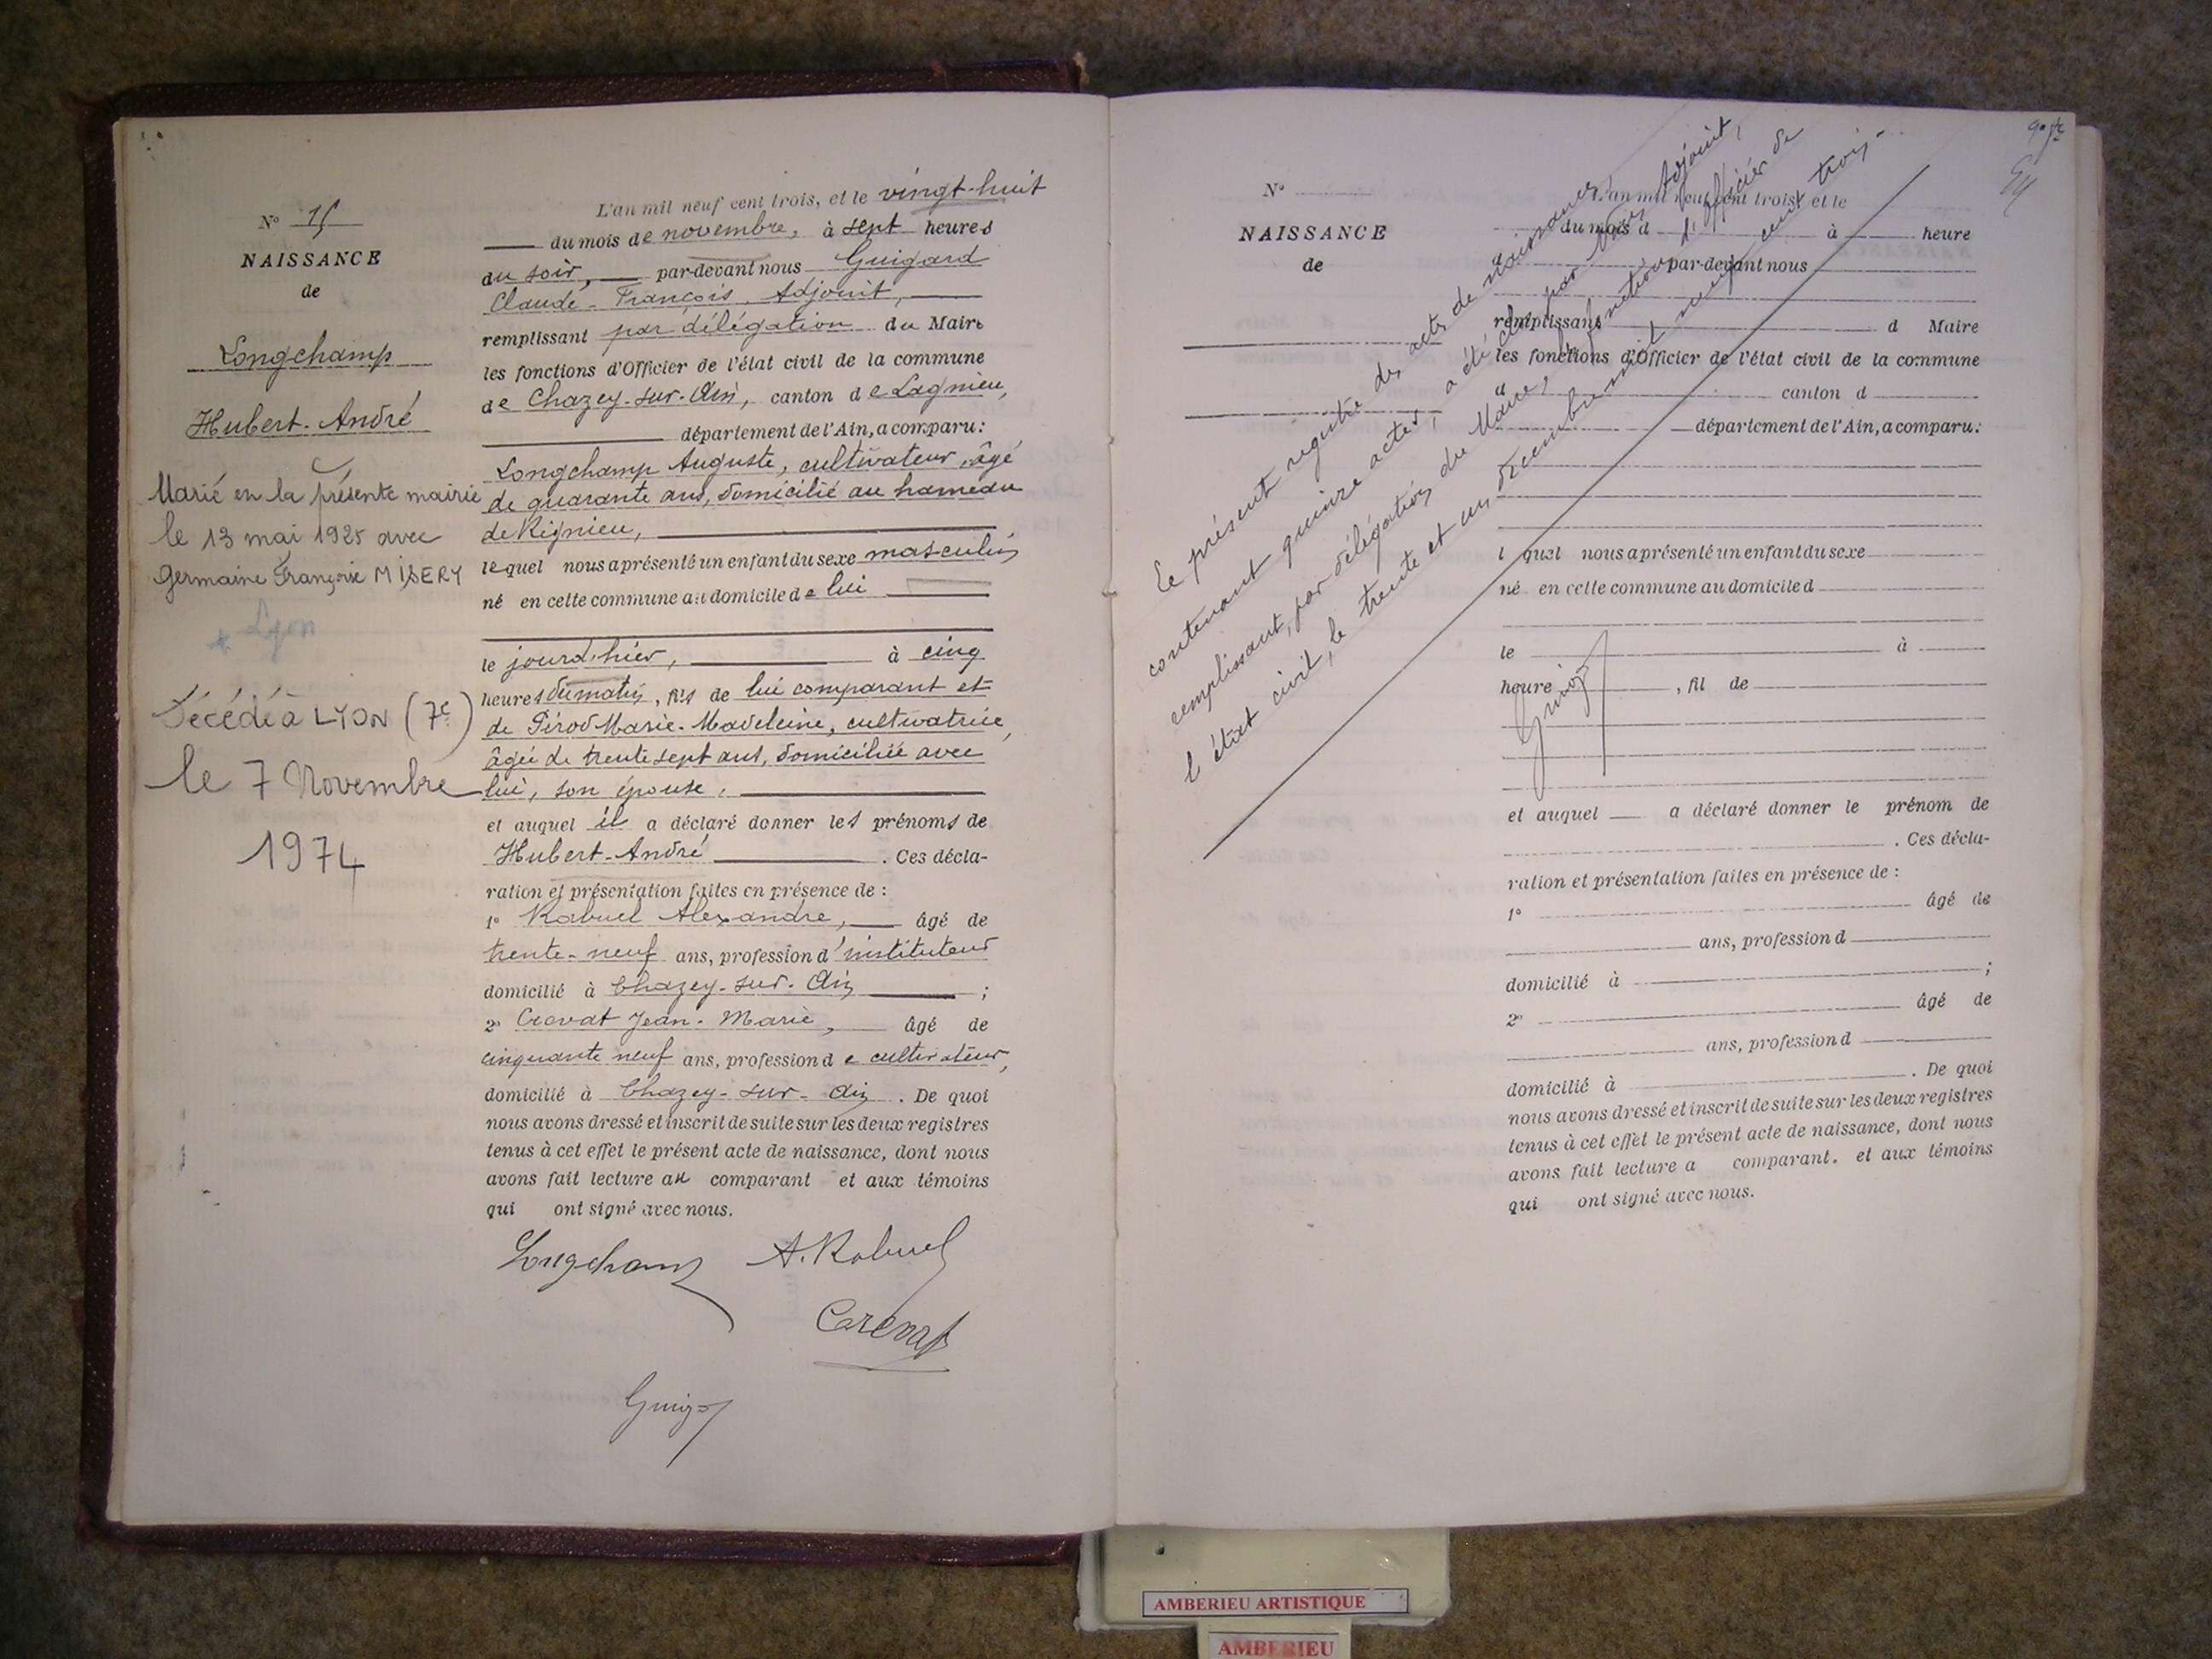 N° 15
NAISSANCE
de
Longchamp
Hubert-André
Marié en la présente mairie
le 13 mai 1925 avec
Germaine Françoise MISERY
Lyon
Décédé à LYON (7e)
le 7 Novembre
1974
L'an mil neuf cent trois, et le vingt-huit
du mois de novembre, à sept heures
du soir, par-devant nous Guigard
Claude-François, Adjoint,
remplissant par délégation du Maire
les fonctions d'Officier de l'état civil de la commune
de Chazey-sur-Ain, canton de Lagnieu,
département de l'Ain, a comparu:
Longchamp Auguste, cultivateur, âgé
de quarante ans, domicilié au hameau
de Rignieu,
lequel nous a présenté un enfant du sexe masculin
né en cette commune au domicile de lui
le jourd'hier, à cinq
heures du matin, fils de lui comparant et
de Pirod Marie-Madeleine, cultivatrice,
âgée de trente sept ans, domiciliée avec
lui, son épouse,
et auquel il a déclaré donner les prénoms de
Hubert-André . Ces décla-
ration et présentation faites en présence de :
1° Rabuel Alexandre, âgé de
trente-neuf ans, profession d'instituteur
domicilié à Chazey-sur-Ain ;
2° Crovat Jean-Marie, âgé de
cinquante neuf ans, profession de cultivateur,
domicilié à Chazey-sur-Ain . De quoi
nous avons dressé et inscrit de suite sur les deux registres
tenus à cet effet le présent acte de naissance, dont nous
avons fait lecture au comparant et aux témoins
qui ont signé avec nous.
Longchamp A. Rabuel
Crovat
N°
NAISSANCE
de
L'an mil neuf cent trois, et le
du mois d à heure
d par-devant nous
remplissant d Maire
les fonctions d'Officier de l'état civil de la commune
d canton d
département de l'Ain, a comparu:
l quel nous a présenté un enfant du sexe
né en cette commune au domicile d
le à
heure , fil de
et auquel a déclaré donner le prénom de
. Ces décla-
ration et présentation faites en présence de :
1° âgé de
ans, profession d
domicilié à ;
2° âgé de
ans, profession d
domicilié à . De quoi
nous avons dressé et inscrit de suite sur les deux registres
tenus à cet effet le présent acte de naissance, dont nous
avons fait lecture a comparant. et aux témoins
qui ont signé avec nous.
Le présent registre des actes de naissances
contenant quinze actes, a été clos par nous Adjoint,
remplissant, par délégation du Maire, les fonctions d'officier de
l'état civil, le trente et un décembre mil neuf cent trois.
AMBERIEU ARTISTIQUE
AMBERIEU